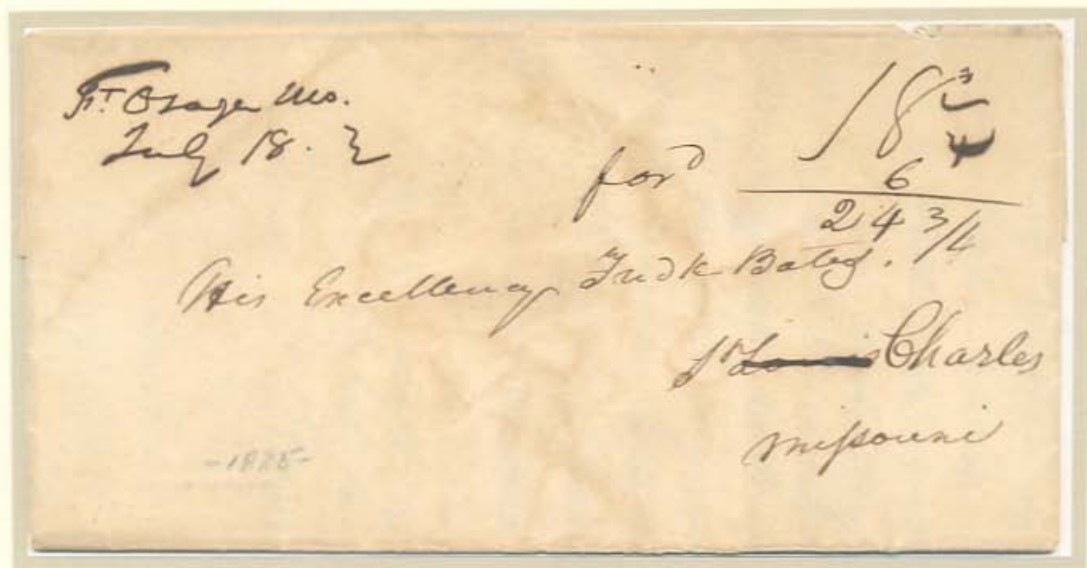 Ft Osage Mo.
July 18.
18 3/4
6
for'd
24 3/4
His Excellency Fredk Bates.
St Louis Charles
Missouri
-1825-